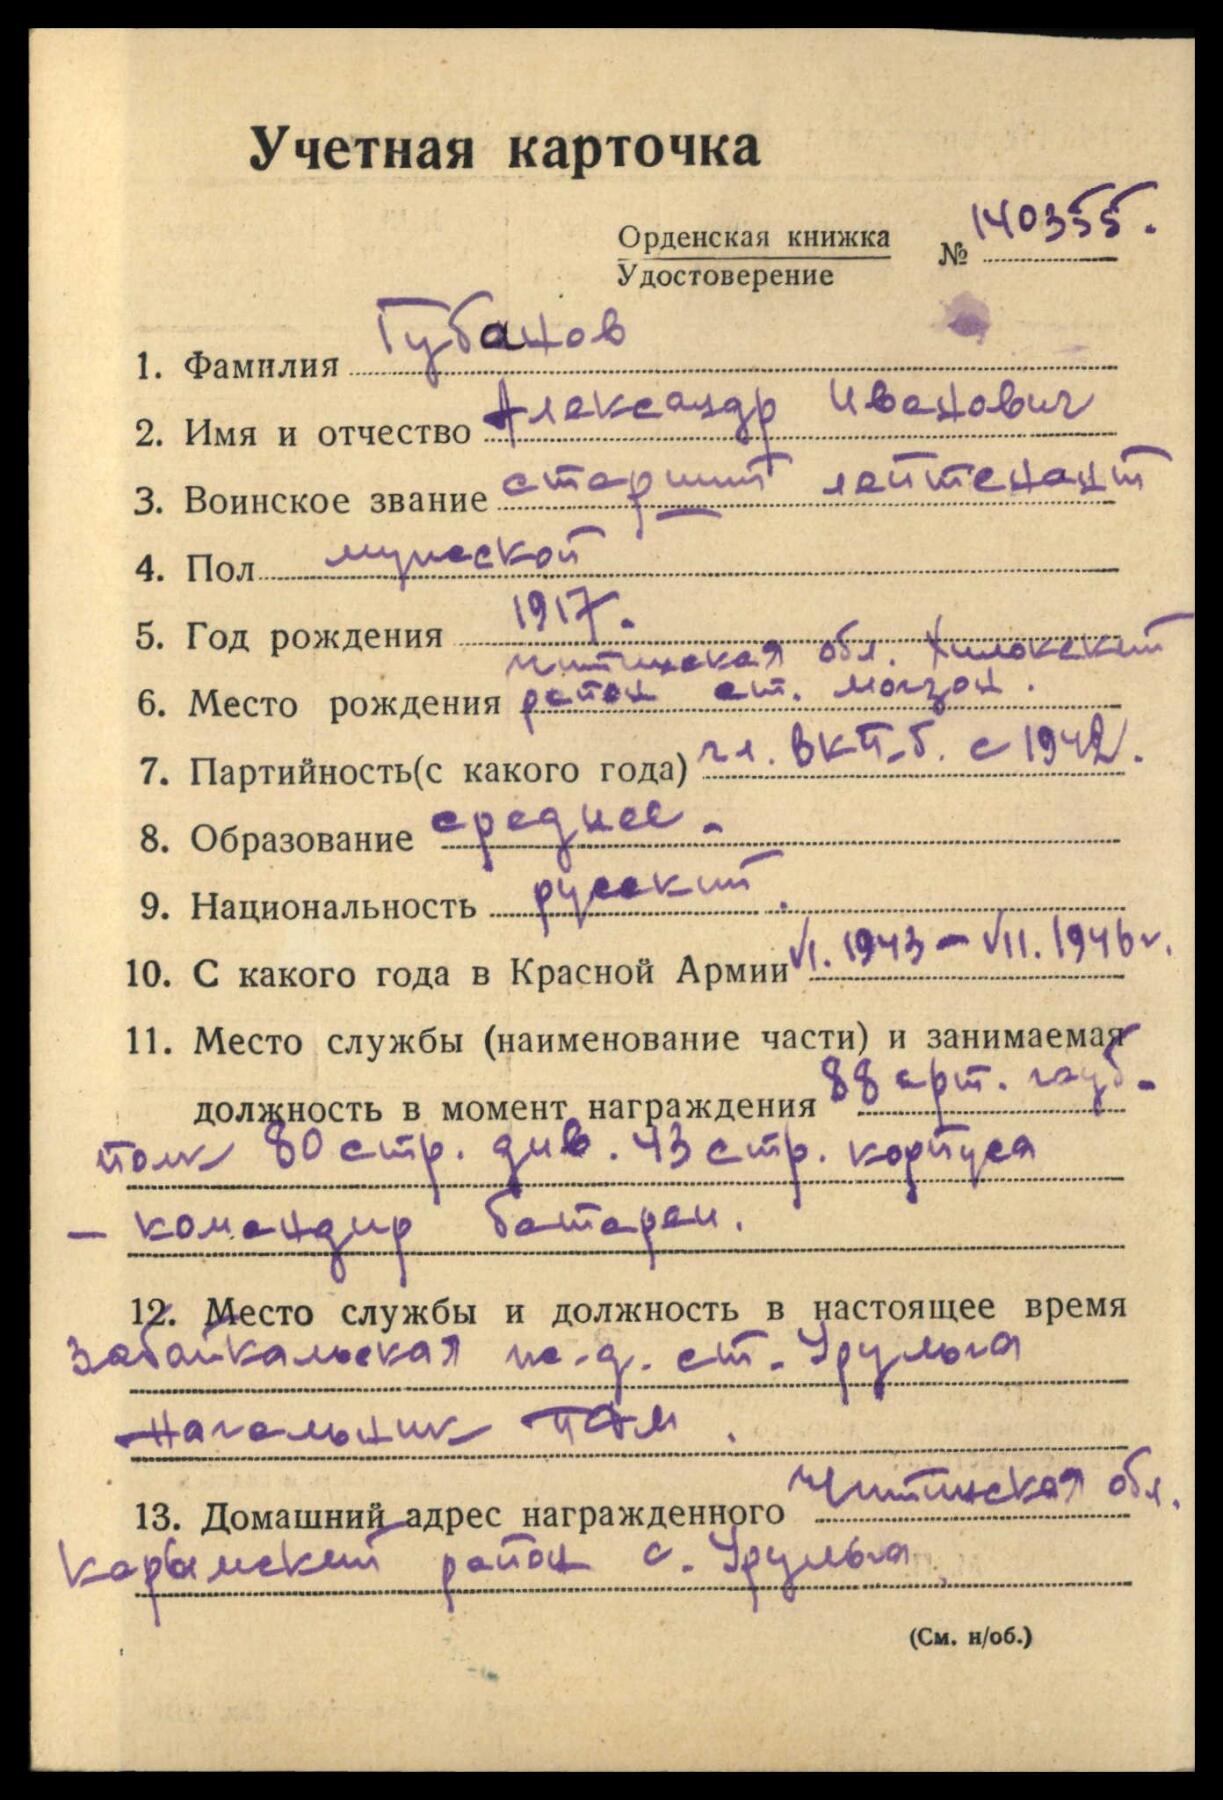 Учетная карточка
Орденская книжка
Удостоверение
№ 140355.
1. Фамилия Губанов
2. Имя и отчество Александр Иванович
3. Воинское звание старший лейтенант
4. Пол мужской
5. Год рождения 1917.
Читинская обл. Хилокский
6. Место рождения район ст. Могзон.
7. Партийность(с какого года) чл. ВКП.б. с 1942.
8. Образование среднее.
9. Национальность русский.
10. С какого года в Красной Армии VI. 1943 – VII. 1946 г.
11. Место службы (наименование части) и занимаемая
должность в момент награждения 88 арт. гауб.
полк 80 стр. див. 43 стр. корпуса
– командир батареи.
12. Место службы и должность в настоящее время
Забайкальская ж.д. ст. Урульга
начальник.
13. Домашний адрес награжденного Читинская обл.
Карымский район с. Урульга
(См. н/об.)